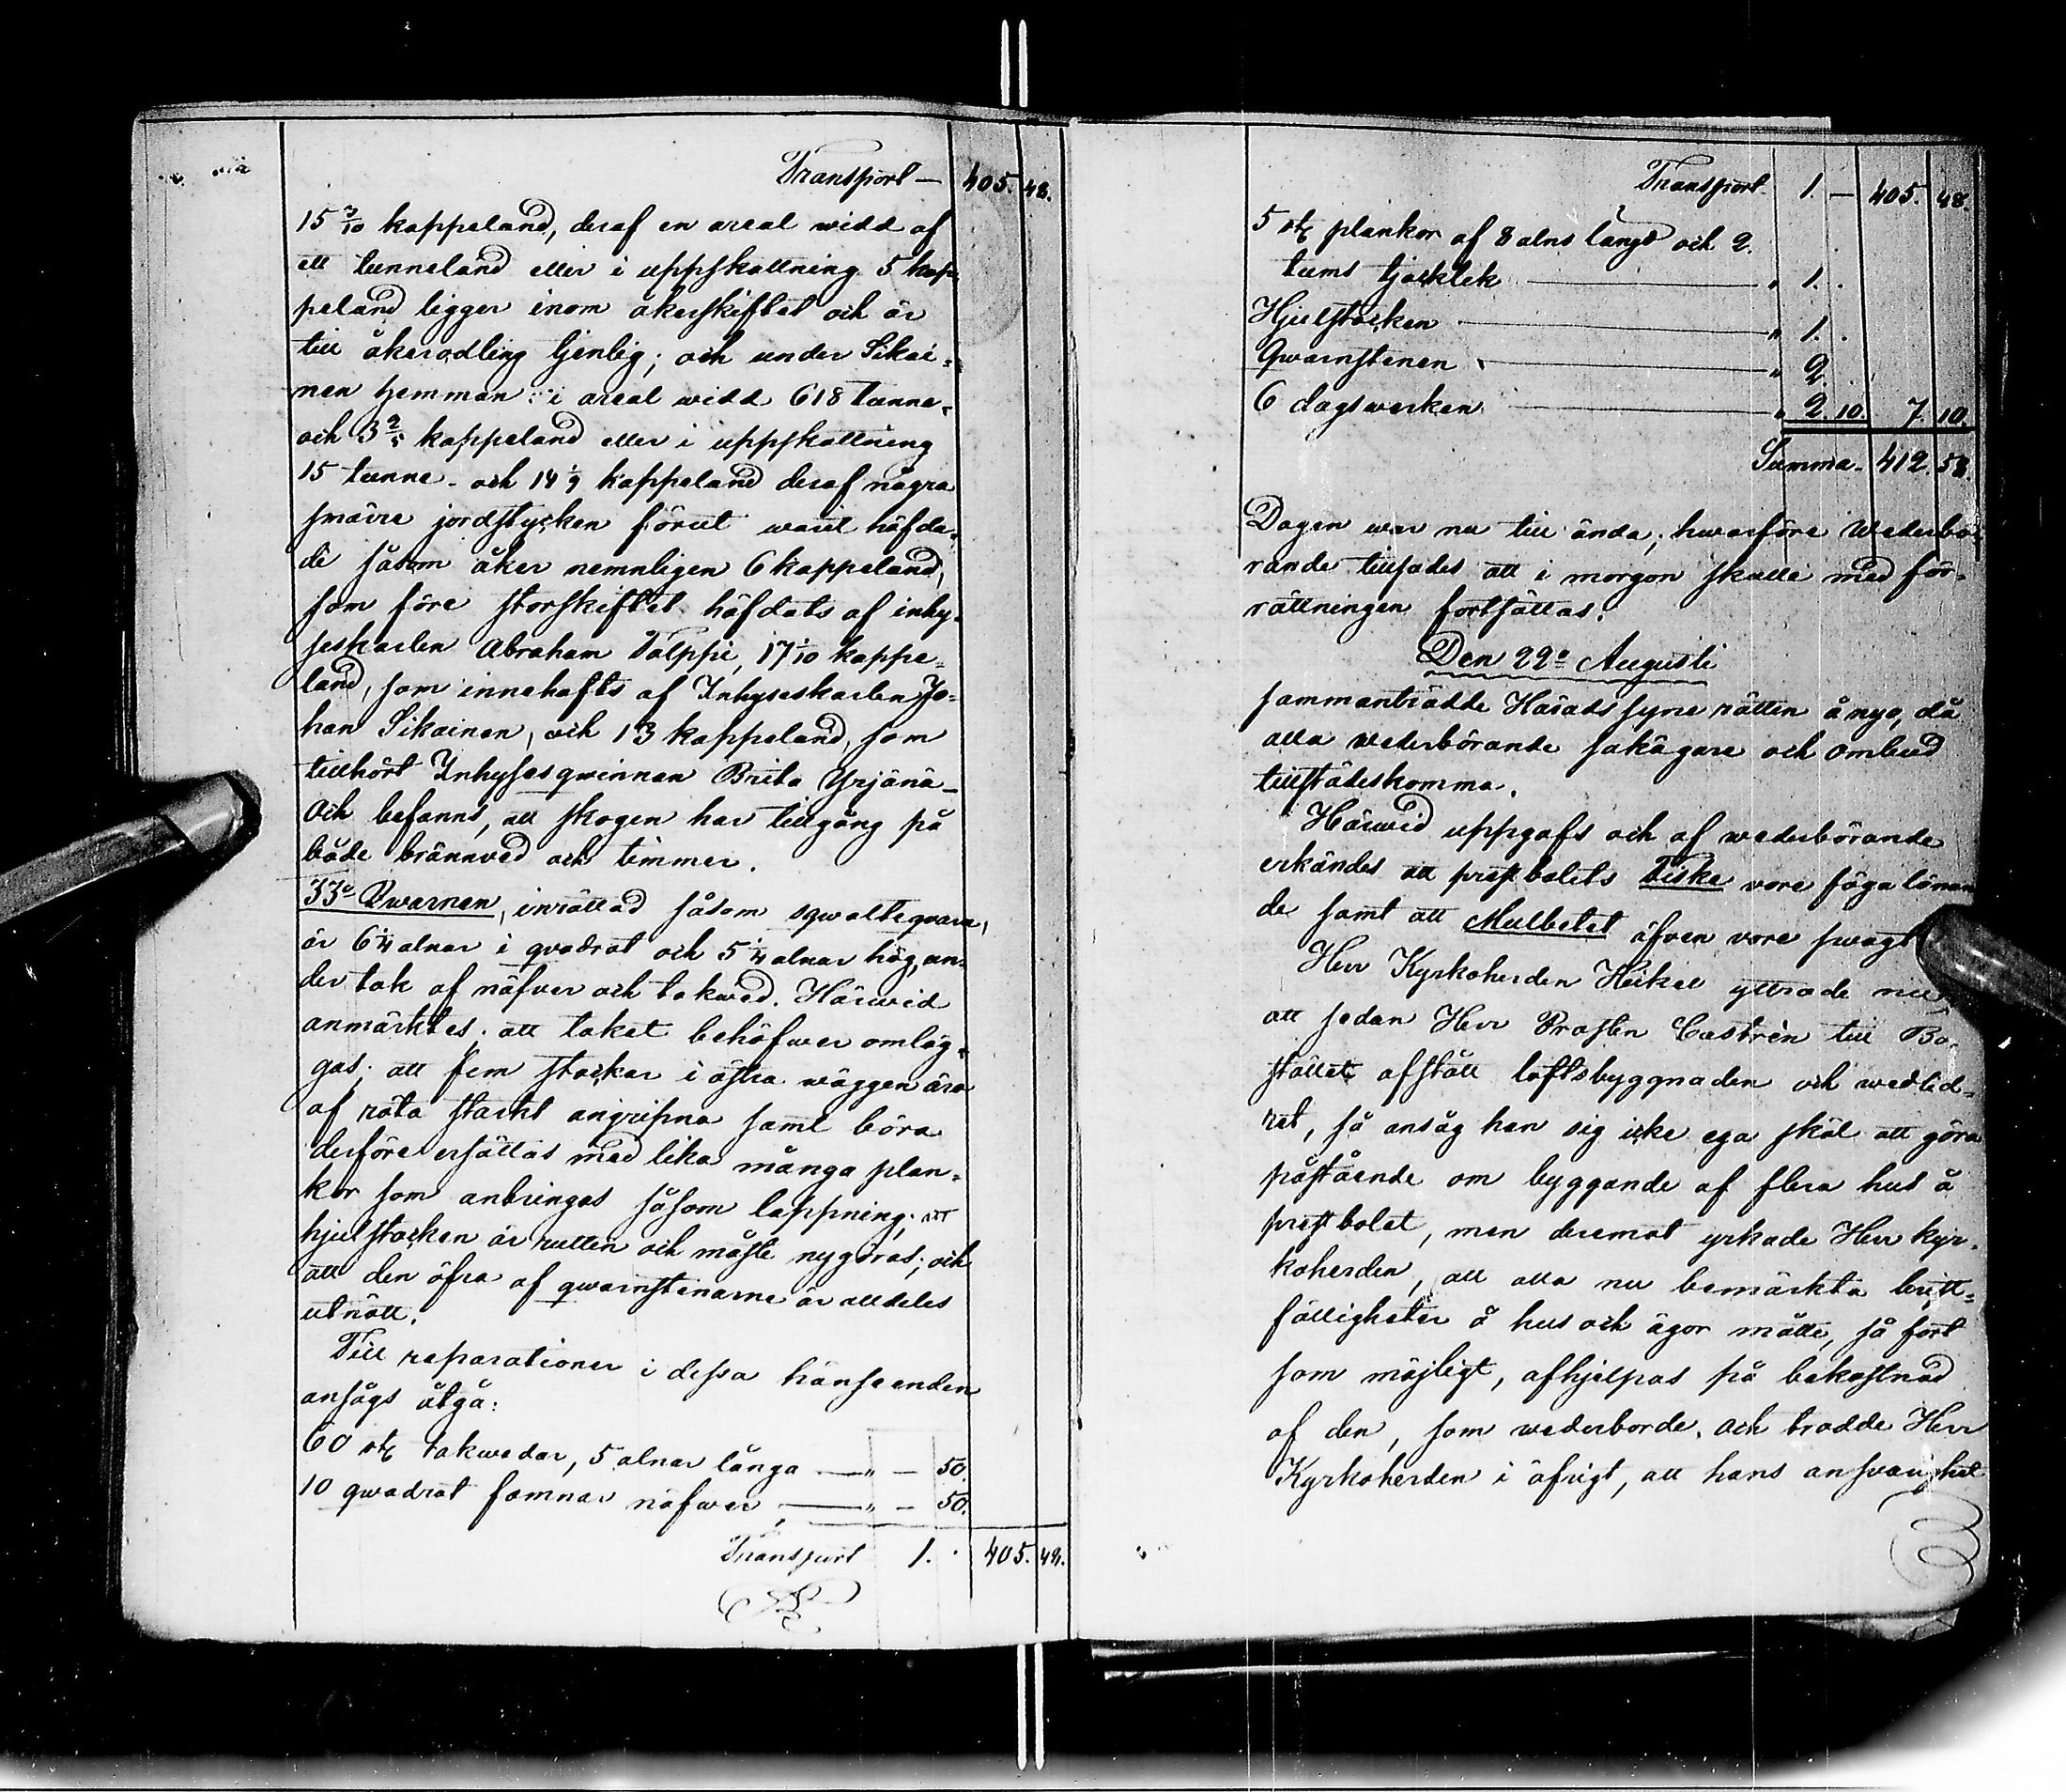 Transport — 405. 48.
15 3/10 kappeland, deraf en areal widd af
ett tunneland eller i uppskattning 5 kap-
peland ligger inom åkerskiftet och är
till åkerodling tjenlig; och under Sikai-
nen hemman: i areal widd 618 tunne-
och 3 2/5 kappeland eller i uppskattning
15 tunne- och 14 1/9 kappeland deraf några
smärre jordstycken förut warit häfda-
de såsom åker nemnligen 6 kappeland,
som före storskiftet häfdats af inhy-
seskarlen Abraham Talppi, 17 1/10 kappe-
land, som innehafts af Inhyseskarlen Jo-
han Sikainen, och 13 kappeland, som
tillhört Inhysesqwinnan Brita Yrjänä-
Och befanns, att skogen har tillgång på
både brännved och timmer.
33o Qwarnen, inrättad såsom sqwalteqvarn,
är 6 1/4 alnar i qvadrat och 5 1/4 alnar hög, un-
der tak af näfver och takwed. Härwid
anmärktes; att taket behöfwer omläg-
gas; att fem stockar i östra wäggen äro
af röta starkt angripna samt böra
derföre ersättas med lika många plan-
kor som anbringas såsom lappning; att
hjulstocken är rutten och måste nygöras; och
att den öfra af qwarnstenarne är alldeles
utnött.
Till reparationer i dessa hänseenden
ansågs åtgå:
60 st takwedar, 5 alnar långa — " — 50.
10 qwadrat famnar näfwer — " — 50.
Transport 1. . 405. 48.
Transport 1. — 405. 48.
5 st plankor af 8 alns längd och 2.
tums tjocklek — " 1. .
Hjulstocken — " 1. .
Qwarnstenen — " 2.
6 dagswerken — " 2. 10. 7. 10.
Summa - 412. 58.
Dagen war nu till ända; hwarföre wederbö-
rande tillsades att i morgon skulle med för-
rättningen fortsättas.
Den 22a Augusti
sammanträdde Härads syne rätten å nyo, då
alla wederbörande sakägare och ombud
tillstädeskomma.
Härwid uppgafs och af wederbörande
erkändes att prestbolets Fiske vore föga lönan
de samt att Mulbetet äfven vore swagt
Herr Kyrkoherden Heikel yttrade nu,
att sedan Herr Prosten Castrén till Bo-
stället afstått loftsbyggnaden och wedlid-
ret, så ansåg han sig icke ega skäl att göra
påstående om byggande af flera hus å
prestbolet, men deremot yrkade Herr kyr-
koherden, att alla nu bemärkta brist-
fälligheter å hus och ägor måtte, så fort
som möjligt, afhjelpas på bekostnad
af den, som wederborde. och trodde Herr
Kyrkoherden i öfrigt, att hans answarighet